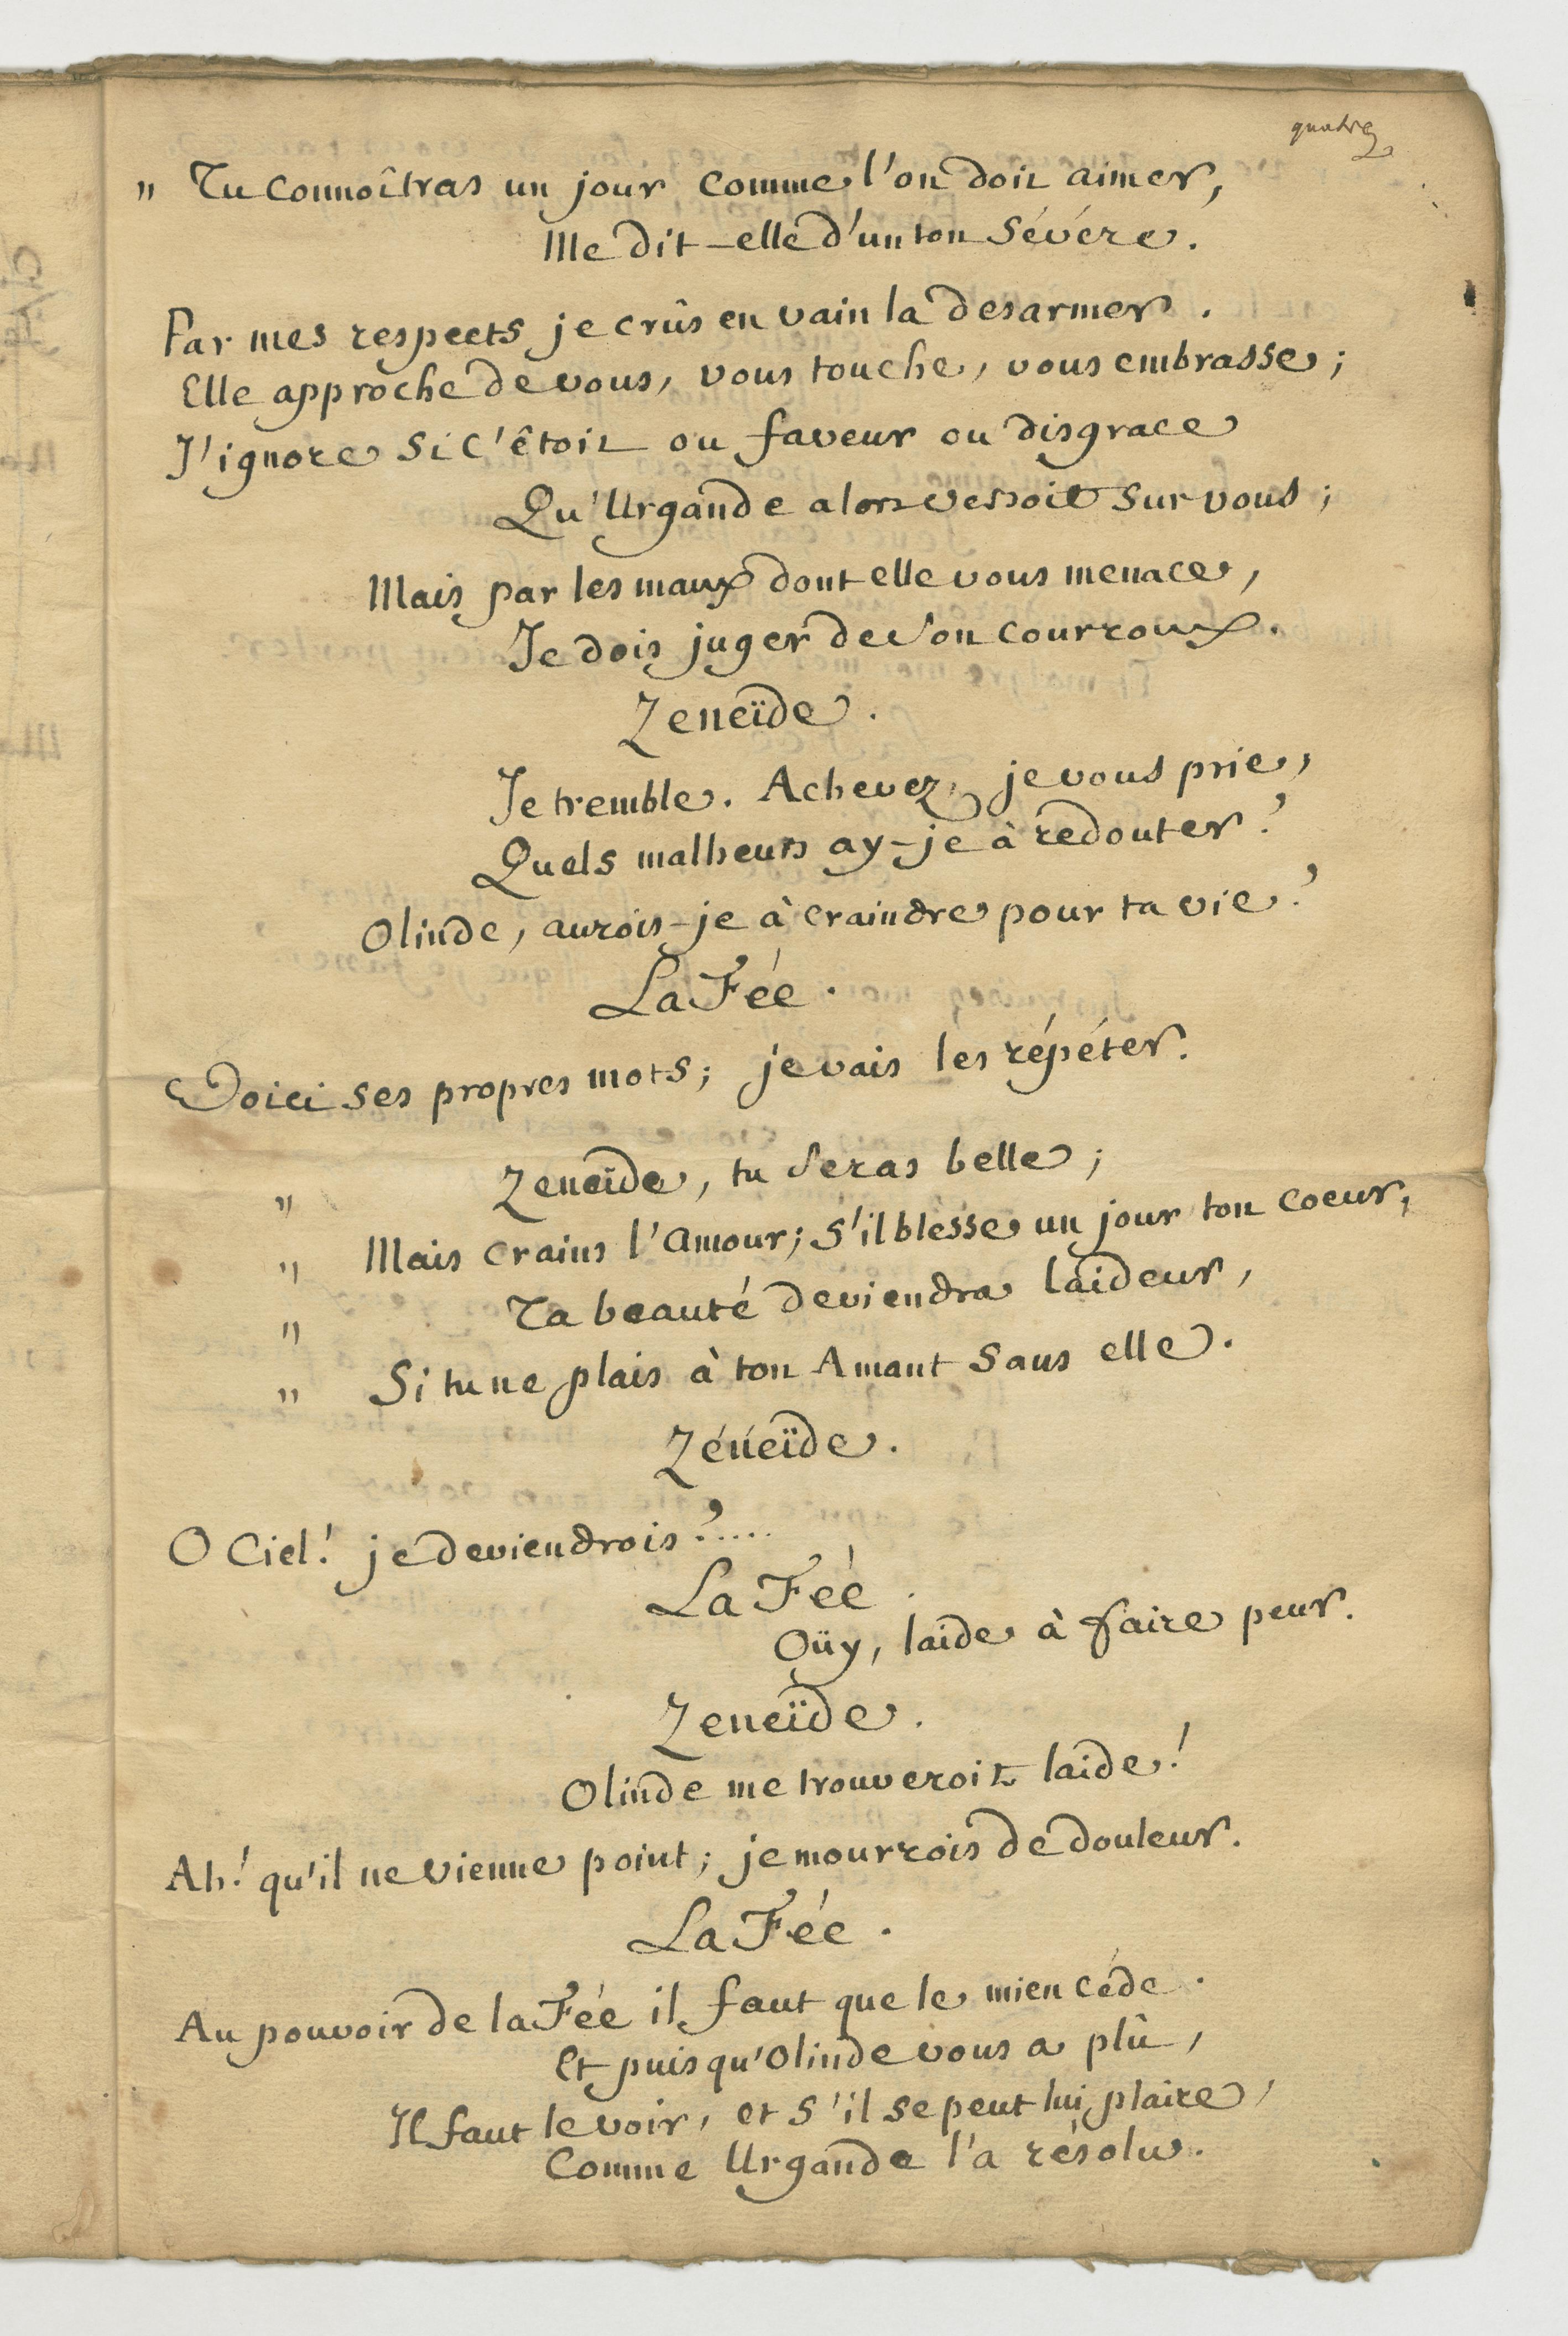 quatre
" Tu connoîtras un jour comme l'on doit aimer,
Me dit-elle d'un ton sévére.
Par mes respects je crûs en vain la desarmer.
Elle approche de vous, vous touche, vous embrasse;
J'ignore si c'êtoit ou faveur ou disgrace
Qu'Urgande alors versoit sur vous;
Mais par les maux dont elle vous menace,
Je dois juger de son courroux.
Zeneïde.
Je tremble. Achevez, je vous prie,
Quels malheurs ay-je à redouter?
Olinde, aurois-je à craindre pour ta vie?
La Fée.
Voici ses propres mots; je vais les répéter.
" Zeneïde, tu seras belle;
" Mais crains l'amour; s'il blesse un jour ton coeur,
" Ta beauté deviendra laideur,
" Si tu ne plais à ton Amant sans elle.
Zéneïde.
O Ciel! je deviendrois?.....
La Fée.
Oüy, laide à faire peur.
Zeneïde.
Olinde me trouveroit laide!
Ah! qu'il ne vienne point; je mourrois de douleur.
La Fée.
Au pouvoir de la Fée il faut que le mien céde.
Et puisqu'Olinde vous a plû,
Il faut le voir, et s'il se peut lui plaire,
Comme Urgande l'a résolu.